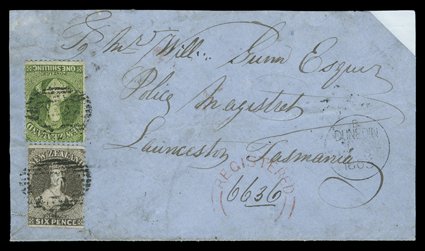 To Mr Will. Gunn Esquire
Police Magistret
Launceston Tasmania
REGISTERED
6636
DUNEDIN
ONE SHILLING
NEW ZEALAND
NEW ZEALAND
SIX PENCE